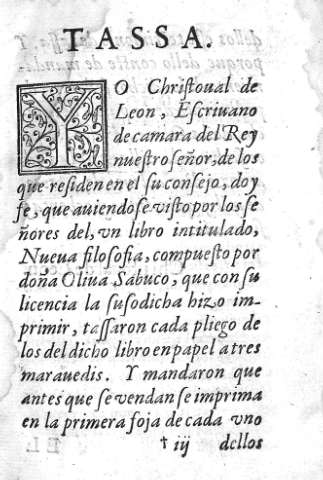 TASSA.
YO Christoual de
Leon, Escriuano
de camara del Rey
nuestro señor, de los
que residen en el su consejo, doy
fe, que auiendose visto por los se
ñores del, vn libro intitulado,
Nueua filosofia, compuesto por
doña Oliua Sabuco, que con su
licencia la susodicha hizo im-
primir, tassaron cada pliego de
los del dicho libro en papel a tres
marauedis. Y mandaron que
antes que se vendan se imprima
en la primera foja de cada vno
† iij dellos